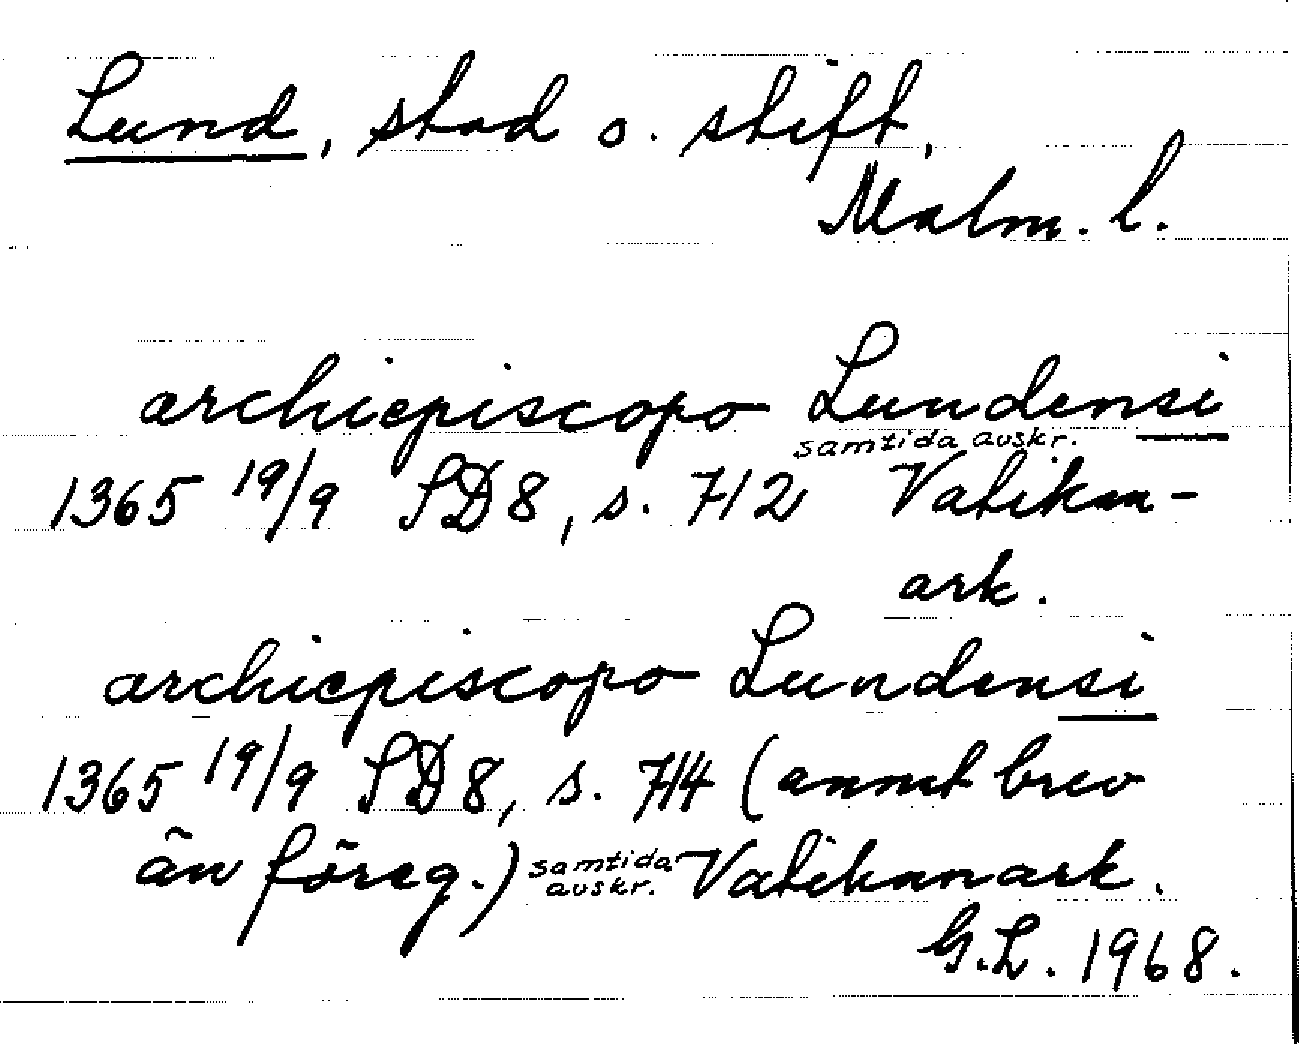 Lund, stad o. stift,
Malm. l.
archiepiscopo Lundensi
samtida avskr.
1365 19/9 SD 8, s. 712 Vatikan-
ark.
archiepiscopo Lundensi
1365 19/9 SD 8, s. 714 (annat brev
än föreg.) samtida avskr. Vatikanark.
G.L. 1968.